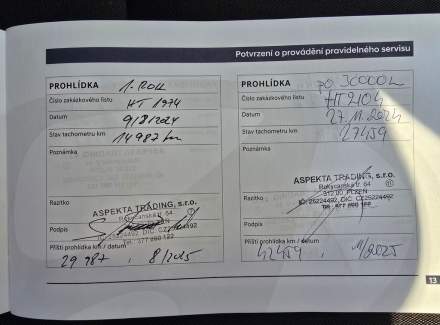 Potvrzení o provádění pravidelného servisu
PROHLÍDKA 1. ROK
Číslo zakázkového listu HT 1974
Datum 9/8/2024
Stav tachometru km 14987 km
Poznámka
Razítko
ASPEKTA TRADING, s.r.o.
Rokycanská tř. 64
312 00 PLZEŇ
Podpis
Tel.: 477 880 122
Příští prohlídka km / datum
29 987, 8/2025
PROHLÍDKA PO 30000 km
Číslo zakázkového listu HT 2104
Datum 27.11.2024
Stav tachometru km 27459
Poznámka
Razítko
ASPEKTA TRADING, s.r.o.
Rokycanská tř. 64
312 00 PLZEŇ
IČ: 25224492, DIČ: CZ25224492
Podpis
Příští prohlídka km / datum
42459, 11/2025
13